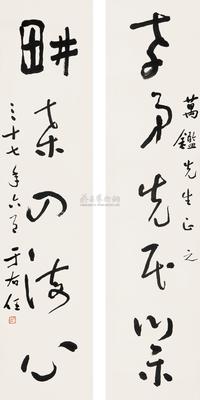 萬鑑先生正之
孝弟先民
耕桑四海心
三十七年六月
于右任